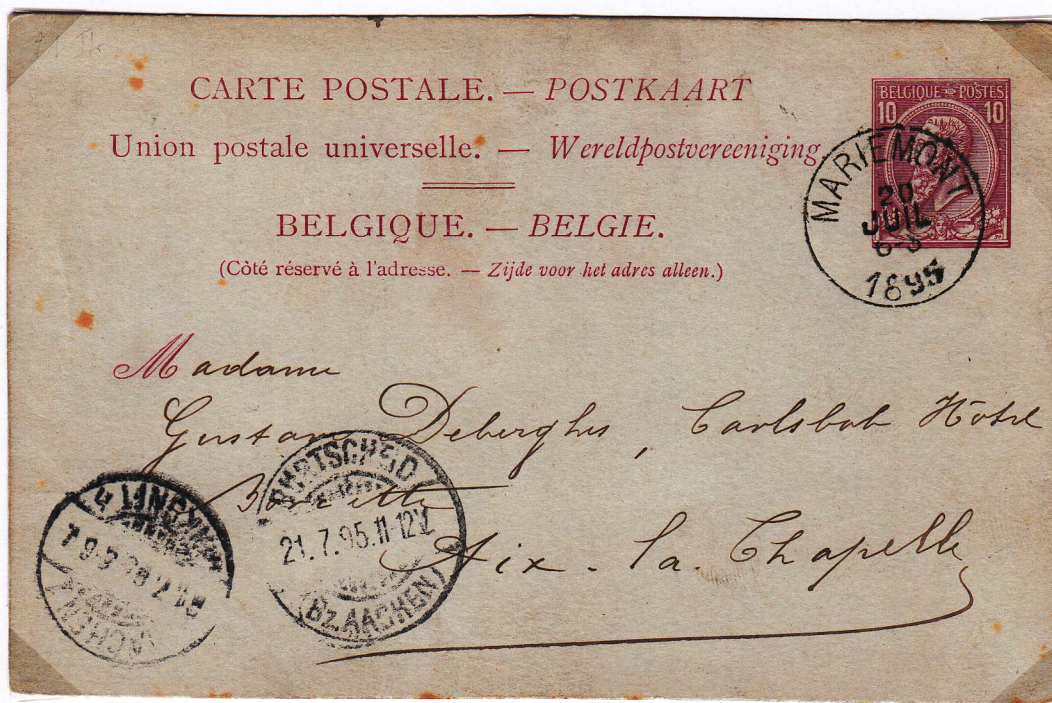 CARTE POSTALE. — POSTKAART
BELGIQUE POSTES
10 10
Union postale universelle. — Wereldpostvereeniging.
BELGIQUE. — BELGIE.
(Côté réservé à l'adresse. — Zijde voor het adres alleen.)
MARIEMONT
20
JUIL
6-S
1895
Madame
Gustave Deberghes, Carlsbad Hôtel
Borcette
Aix-la-Chapelle
BURTSCHEID
21.7.95.11-12V.
(Bz. AACHEN)
AACHEN